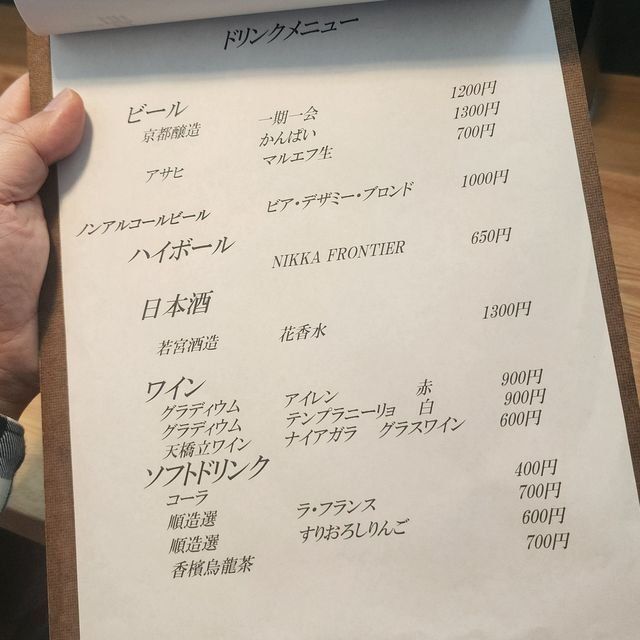 ドリンクメニュー
ビール
京都醸造 一期一会 1200円
かんぱい 1300円
アサヒ マルエフ生 700円
ノンアルコールビール ビア・デザミー・ブロンド 1000円
ハイボール
NIKKA FRONTIER 650円
日本酒
若宮酒造 花香水 1300円
ワイン
グラディウム アイレン 赤 900円
グラディウム テンプラニーリョ 白 900円
天橋立ワイン ナイアガラ グラスワイン 600円
ソフトドリンク
コーラ 400円
順造選 ラ・フランス 700円
順造選 すりおろしりんご 600円
香檳烏龍茶 700円